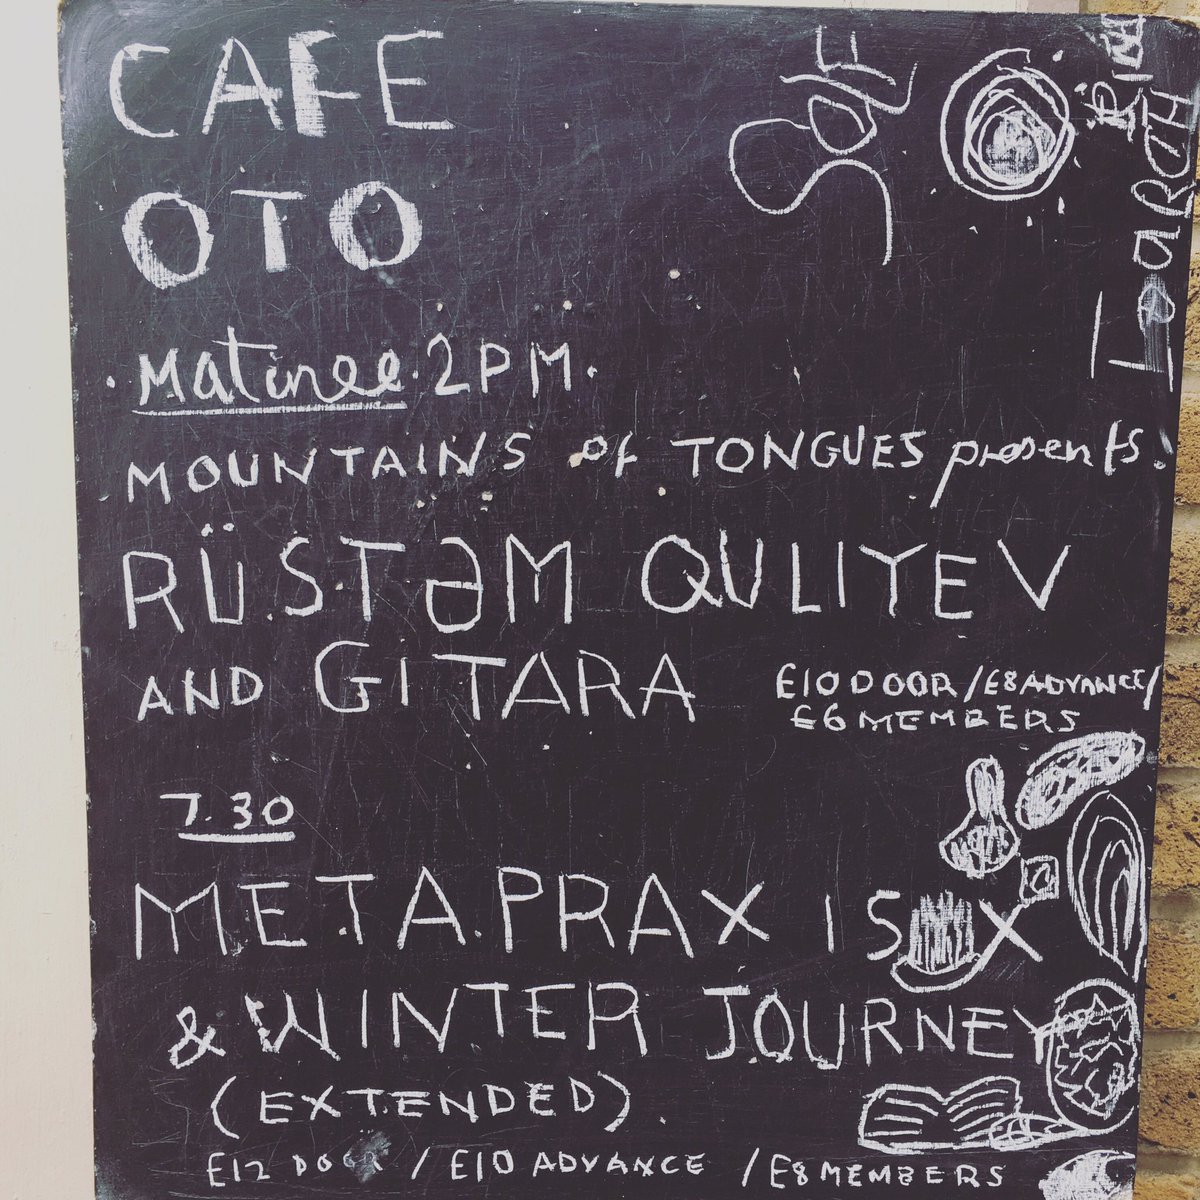 CAFE
OTO
Matinee. 2PM.
MOUNTAINS of TONGUES presents.
RÜSTƏM QULIYEV
AND GITARA
£10 DOOR / £8 ADVANCE /
£6 MEMBERS
7.30
METAPRAX IS
& WINTER JOURNEY
(EXTENDED).
£12 DOOR / £10 ADVANCE / £8 MEMBERS